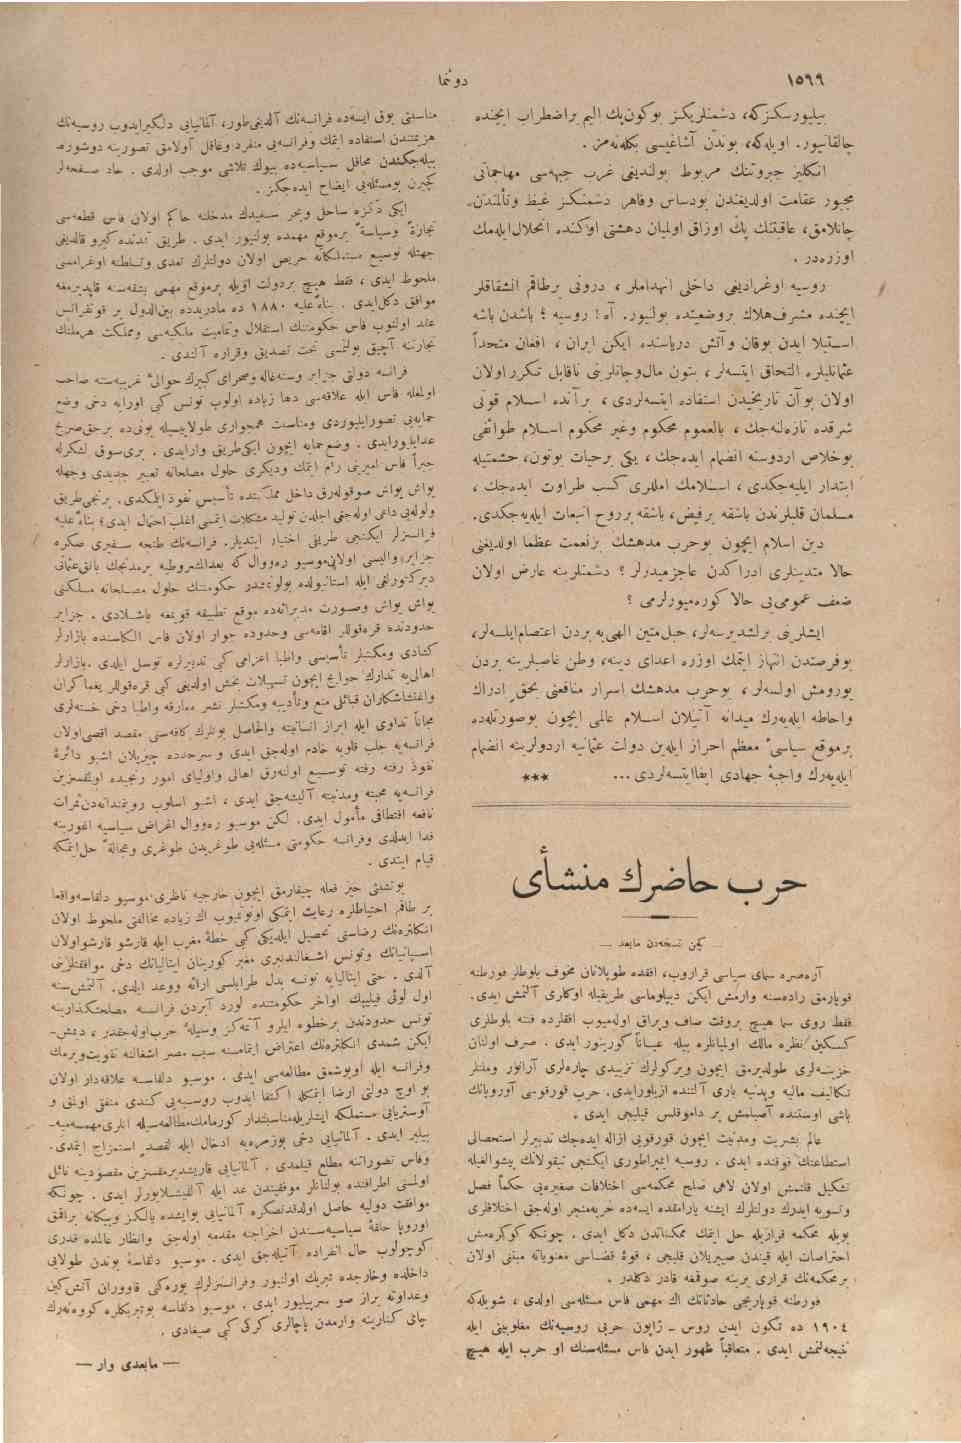 ١٥٦٩
دوننما
بیلیورسكزكه، دشمنلریكز بوكون‌پك الیم براضطراب ایچنده
چالقانیور. اویله‌كه، بوندن آشاغیسی بكله‌نه‌مز.
انكلیز جبروتنك مربوط بولندیغی غرب جبهه‌سی مهاجماتی
مجبور عقامت اولدیغندن بودساس وقاهر دشمنكز غیظ وتألمندن
چانلامق، عاقبتنك پك اوزاق اولمیان دهشتی اوكنده انحلال‌ایله‌مك
اوزره‌در.
روسیه اوغرادیغی داخلی انهداملر، درونی برطاقم انشقاقلر
ایچنده مشرف‌هلاك بروضعیتده بولنیور. آه! روسیه؛ باشدن باشه
استیلا ایدن بوقان وآتش دریاسنده ایكن ایران، افغان متحداً
عثمانلیلره التحاق ایتسه‌لر، بتون مال‌وجانلرینی ناقابل تكرر اولان
اولان بوآن تاریخیدن استفاده ایتسه‌لردی، برآنده اسلام قوتی
شرقده تازه‌له‌نه‌جك، بالعموم محكوم وغیر محكوم اسلام طوائفی
بوخلاص اردوسنه انضمام ایده‌جك، یكی برحیات بوتون، حشمتیله
ابتدار ایلیه‌جكدی، اسلامك املاری كسب طراوت ایده‌جك،
مسلمان قلبلرندن باشقه برفیض، باشقه برروح انبعاث ایله‌یه‌جكدی.
دین اسلام ایچون بوحرب مدهشك برنعمت عظما اولدیغنی
حالا متدینلری ادراكدن عاجزمیدرلر؟ دشمنلرینه عارض اولان
ضعف عمومی‌یی حالا كوره‌میورلرمی؟
ایشلرینی برلشدیرسه‌لر، حبل‌متین الهی‌یه بردن اعتصام‌ایلسه‌لر،
بوفرصتدن انتهاز ایتمك اوزره اعدای دینه، وطن غاصبلرینه بردن
یورومش اولسه‌لر، بوحرب مدهشك اسرار منافعنی بحق ادراك
واحاطه ایله‌یه‌رك میدانه آتیلان اسلام عالمی ایچون بوصورتله‌ده
برموقع سیاسیٔ معظم احراز ایله‌ین دولت عثمانیه اردولرینه انضمام
ایله‌یه‌رك واجبۀ جهادی ایفاایتسه‌لردی... ***
حرب حاضرك منشأی
— كچن نسخه‌دن مابعد —
آره‌صره سمای سیاسی قرارویب، افقده طوپلانان مخوف بلوطلر فورطنه
قوپارمق راده‌سنه وارمش ایكن دیپلوماسی طریقیله اوكلری آلنمش ایدی.
فقط روی سما هیچ بروقت صاف وبراق اوله‌میوب افقلرده فتنه بلوطلری
كسكین نظره مالك اولمیانلره بیله عیاناً كورینور ایدی. صرف اولنان
خزینه‌لری طولدیرمق ایچون ویركولرك تزییدی چاره‌لری آرانور وملتلر
تكالیف مالیه وبدنیه باری آلتنده ازیلورایدی. حرب قورقوسی آوروپانك
باشی اوستنده آصیلمش بر داموقلس قیلیجی ایدی.
عالم بشریت ومدنیت ایچون قورقویی ازاله ایده‌جك تدبیرلر استحصالی
استطاعتك فوقنده ایدی. روسیه ایمپراطوری ایكنجی نیقولانك پیشوالغیله
تشكیل قلنمش اولان لاهی صلح محكمه‌سی اختلافات صغیره‌یی حكماً فصل
وتسویه ایدرك دولتلرك ایشنه یارامقده ایسه‌ده حربه‌منجر اوله‌جق اختلافلری
بویله محكمه قرارلریله حل ایتمك ممكناتدن دكل ایدی. چونكه كوكرله‌مش
احتراصات ایله قیندن صیریلان قلیجی، قوۀ قضاسی معنویاته مبتنی اولان
برمحكمه‌نك قراری یرینه صوقمغه قادر دكلدر.
فورطنه قوپاریجی حادثاتك اك مهمی فاس مسئله‌سی اولدی، شویله‌كه
١٩٠٤ ده تكون ایدن روس - ژاپون حربی روسیه‌نك مغلوبیتی ایله
نتیجه‌لنمش ایدی. متعاقباً ظهور ایدن فاس مسئله‌سنك او حرب ایله هیچ
مناسبتی یوق ایسه‌ده فرانسه‌نك آلدیغی‌طور، آلمانیایی دلكیرایدوب روسیه‌نك
هزیمتندن استفاده ایتمك وفرانسه‌یی منفرد وغافل آولامق تصورینه دوشوره
بیله‌جكندن محافل سیاسیه‌ده بیوك تلاشی موجب اولدی.
كچیرن بومسئله‌یی ایضاح ایده‌جكز.
ایكی دكزه ساحلی وبحر سفیدك مدخلنه حاكم اولان فاس قطعه‌سی
تجارةً وسیاسةً برموقع مهمده بولنیور ایدی. طریق تمدنده كیرو قالدیغی
جهتله توسیع مستملكاته حریص اولان دولتلرك تعدی وتسلطنه اوغرامسی
ملحوظ ایدی، فقط هیچ بردولت اویله برموقع مهمی بتقه‌سنه قاپدیرمغه
موافق دكل‌ایدی. بناءً علیه ١٨٨٠ ده مادریدده بین‌الدول بر قونفرانس
عقد اولنوب فاس حكومتنك استقلال وتمامیت ملكیه‌سی ومملكت هرملتك
تجارتنه آچیق بولنمسی تحت تصدیق وقراره آلندی.
فرانسه دولتی جزایر وسنه‌غاله وصحرای كبیرك حوالیٔ غربیه‌سنه صاحب
اولمغله فاس ایله علاقه‌سی دها زیاده اولوب تونس كبی اورایه دخی وضع
حمایه‌یی تصورایلیوردی ومناسبت همجواری طولاییسیله بونی‌ده برحق‌صریح
عدایلیورایدی. وضع‌حمایه ایچون ایكی‌طریق وارایدی. بری‌سوق لشكرله
جبراً فاس امیرینی رام ایتمك ودیكری حلول مصلحانه تعبیر جدیدی وجهله
یواش یواش صوقوله‌رق داخل مملكتده تأسیس نفوذ ایلیكدی. برنجی‌طریق
ولوله‌یی داعی اوله‌جغی اجلدن تولید مشكلات ایتمسی اغلب احتمال ایدی؛ بناءً علیه
فرانسزلر ایكنجی طریقی اختیار ایتدیلر. فرانسه‌نك طنجه سفیری صكره
جزایر والیسی اولان‌موسیو ره‌ووال كه بعدالمشروطیه برمدتجك بانق‌عثمانی
دیركتورلغی ایله استانبولده بولونمشدر حكومتنك حلول مصلحانه مسلكنی
یواش یواش وصورت مدبرانه‌ده موقع تطبیقه قویمغه باشلادی. جزایر
حدودنده قره‌قوللر اقامه‌سی وحدوده جوار اولان فاس الكاسنده بازارلر
كشادی ومكتبلر تأسیسی واطبا اعزامی كبی تدبیرلره توسل ایلدی. بازارلر
اهالی‌یه تدارك حوایج ایچون تسهیلات بخش اولدیغی كبی قره‌قوللر یغماكران
واغتشاشكاران قبائلی منع وتأدیبه ومكتبلر نشر معارفه واطبا دخی خسته‌لری
مجاناً تداوی ایله ابراز انسانیته والحاصل بونلرك كافه‌سی مقصد اقصی‌اولان
فرانسه‌یه جلب قلوبه خادم اوله‌جق ایدی و سرحدده چیزیلان اشبو دائرۀ
نفوذ رفته رفته توسیع اولنه‌رق اهالی واولیای امور رنجیده اولمقسزین
فرانسه‌یه محبته ومدنیته آلیشه‌جق ایدی، اشبو اسلوب روشمندانه‌دن‌ثمرات
نافعه اقتطافی مأمول ایدی. لكن موسیو ره‌ووال اغراض سیاسیه اغورینه
فدا ایدلدی وفرانسه حكومتی مسئله‌یی طوغریدن طوغری وعجالةً حل‌ایتمكه
قیام ایتدی.
بونشئی حیز فعله چیقارمق ایچون خارجیه ناظری‌موسیو دلقاسه‌واقعا
بر طاقم احتیاطلره رعایت ایتمكی اونوتمیوب اك زیاده مخالفتی ملحوظ اولان
انكلتره‌نك رضاسنی تحصیل ایلدیكی كبی خطۀ مغرب ایله قارشو قارشواولان
اسپانیانك وتونس اشغالندنبری مغبر كورینان ایتالیانك دخی موافقتلرینی
آلدی. حتی ایتالیایه تونسه بدل طرابلسی ارائه ووعد ایلدی. آلتمش‌سنه
اول لوئی فیلیپك اواخر حكومتنده لورد آبردن فرانسه مصلحتكذارینه
تونس حدودندن برخطوه ایلرو آتمه‌كز وسیلۀ حرب‌اوله‌جقدر، دیمش-
ایكن شمدی انكلتره‌نك اعتراض ایتمامسنه سبب مصر اشغالنه تقویت‌ویرمك
وفرانسه ایله اویوشمق مطالعه‌سی ایدی. موسیو دلقاسه علاقه‌دار اولان
بو اوچ دولتی ارضا ایتمكله اكتفا ایدوب روسیه‌یی كندی متفق اولمق و
آوستریایی مستملكه ایشلریله‌مناسبتدار كورمامك‌مطالعه‌سیله انلری‌مهمسه‌میه-
بیلیر ایدی. آلمانیایی دخی بوزمره‌یه ادخال ایله لقصد استمزاج ایتمدی.
وفاس تصوراتنه مطلع قیلمدی. آلمانیایی قاریشدیرمقسزین مقصودینه نائل
اولمسنی اطرافنده بولنانلر موفقیتندن عد ایله آلقیشلایورلر ایدی. چونكه
موافقت دولیه حاصل اولدقدنصكره آلمانیایی بوایشده یالكز وبیكانه براقمق
اوروپا حلقۀ سیاسیه‌سندن اخراجنه مقدمه اوله‌جق وانظار عالمده قدری
كوچولوب حال انفراده آتیله‌جق ایدی. موسیو دلقاسه بوندن طولایی
داخلده وخارجده تبریك اولنیور وفرانسزلرك یوره‌كی قاووران آتش‌كین
وعداوته براز صو سرپیلیور ایدی. موسیو دلقاسه بوتبریكلره كووه‌نه‌رك
چای كنارینه وارمدن پاچالری كركی كبی صیغادی.
— مابعدی وار —